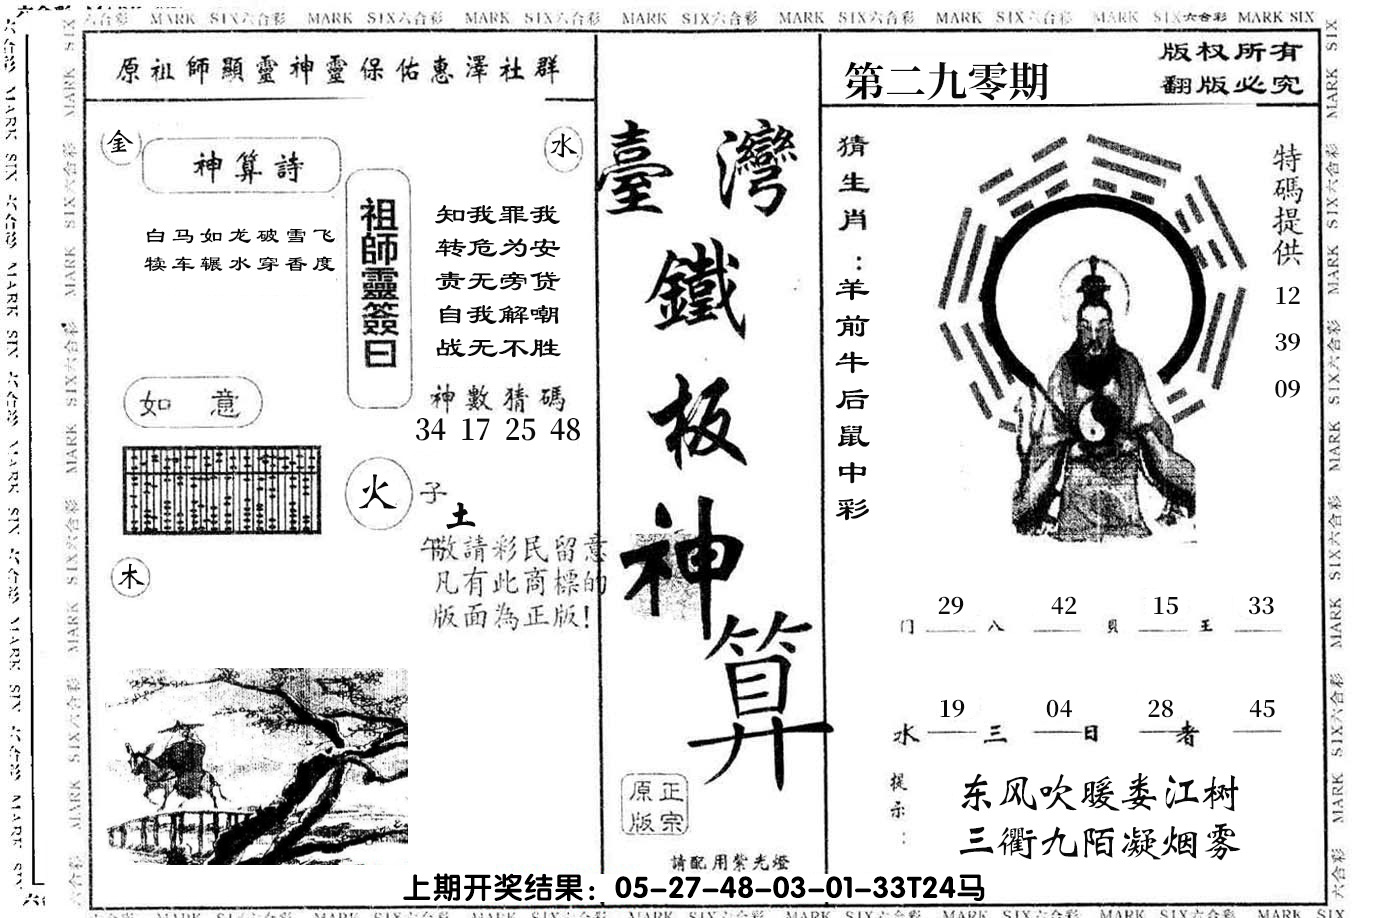 MARK SIX六合彩 MARK SIX六合彩 MARK SIX六合彩 MARK SIX六合彩 MARK SIX六合彩 MARK SIX六合彩 MARK SIX六合彩 MARK SIX
原祖師顯靈神靈保佑惠澤社群
金
神算詩
水
白马如龙破雪飞
犊车辗水穿香度
祖師靈簽曰
知我罪我
转危为安
责无旁贷
自我解嘲
战无不胜
神數猜碼
34 17 25 48
如意
火
子
土
午
敬請彩民留意
凡有此商標的
版面為正版!
木
臺灣
鐵
板
神
算
原正
版宗
請配用紫光燈
第二九零期
版权所有
翻版必究
猜生肖:羊前牛后鼠中彩
特碼提供
12
39
09
29 42 15 33
门 八 貝 王
19 04 28 45
水 三 日 者
提示:
东风吹暖娄江树
三衢九陌凝烟雾
上期开奖结果：05-27-48-03-01-33T24马